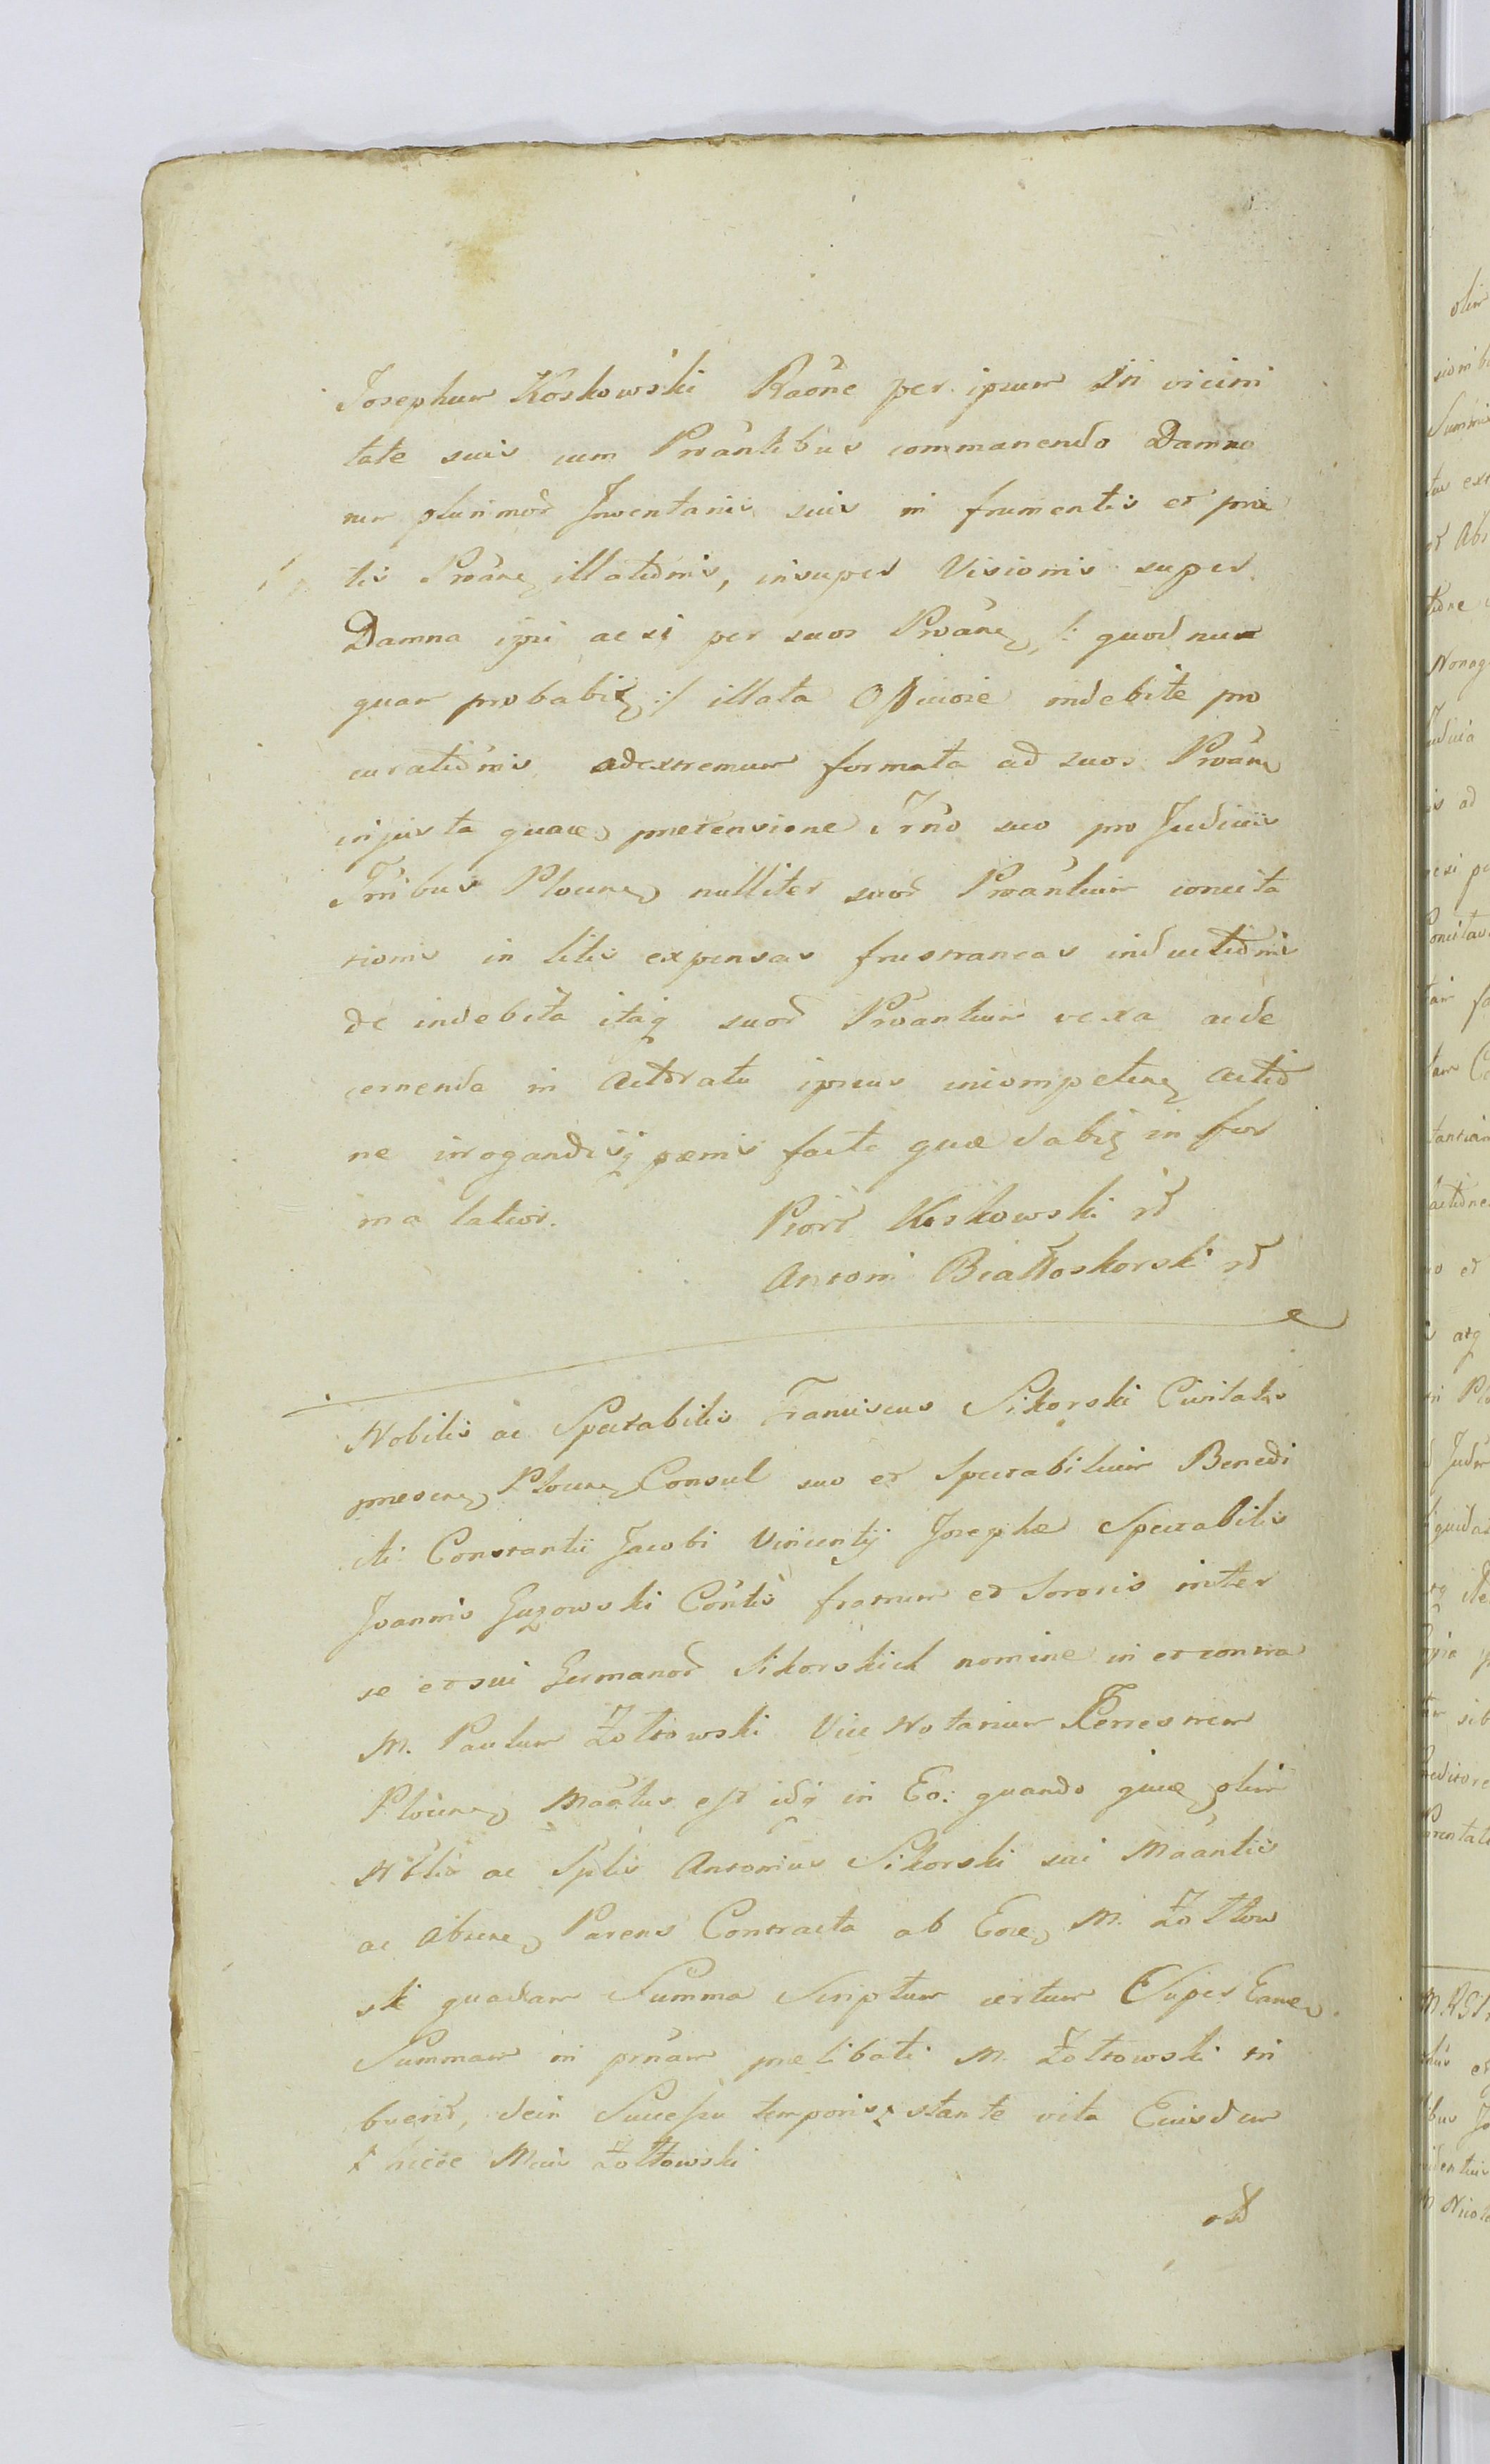 Josephum Koskowski Raõne per ipsum in vicini
tate suis cum Proãntibus commanendo Damno
rum plurimor Inventariis suis in frumentis et pra
tis Proãne illatiõnis, insuper Visionis super
Damna ipsi ac si per suos Proãne /: quod nun
quam probabit :/ illata Officiose indebite pro
curatiõnis adextremum formata ad suos Proãne
injusta quaee pretensione Trno suo pro Judiciis
Trribus Plocens nulliter suor Proãntium concita
tionis in litis expensas frustraneas inductiõnis
de indebita itaq suor Proantium vexa ac de
cernenda in actoratu ipsius incompetens actiõ
ne irogandisq paenis facta quae dabit in for
ma latior.
Piotr Koskowski rd
Antoni Białłoskorski rd
Nobilis ac Spectabilis Franciscus Sikorski Civitatis
presens Plocens Consul suo et Spectabilium Benedi
cti Constantii Jacobi Vincentij Josephae Spectabilis
Joannis Guzowski Cõntis fratrum et Sororis inter
se et sui Germanor Sikorskich nomine in et contra
M. Paulum Żołtowski Vice Notarium Terrestrem
Plocens Maãtus est idq in Eo: quando quae olim
Nblis ac Spblis Antonius Sikorski sui Maãntis
ac Absens Parens Contracta ab Eoe M. Żołtow
ski quadam Summa Scriptum certum Super Eame
Summam in prnam praelibati M. Żołtowski tri
buerit, dein Successu temporis stante vita Eiusdem
Mci Żołtowski
od